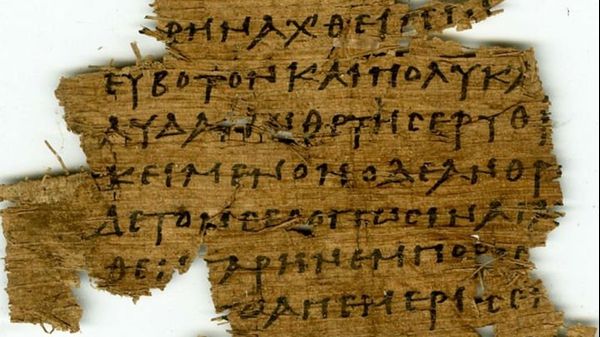 ΡΗΝΑΧΘΕΙ
ΕΥΒΟΤΟΝΚΑΙΠΟΛΥΚΑ
ΛΥΔΑ ΝΘΡΤΗϹΕΡΥΘ
ΚΕΙΜΕΝΟΝΟΔΕΑΝΘΡ
ΔΕΤΟΝ ΛΟΓΕΩϹΙΝΑ
ΘΕΙ ΑΡΗΝΕΜΠΟΡ
ΑΝΕΜΕΡΙ ΕΙ